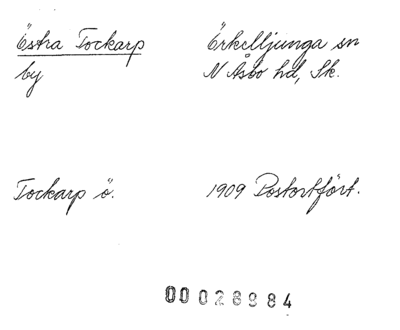 Östra Tockarp
by
Örkelljunga sn
N Åsbo hd, Sk.
Tockarp ö.
1909 Postortfört.